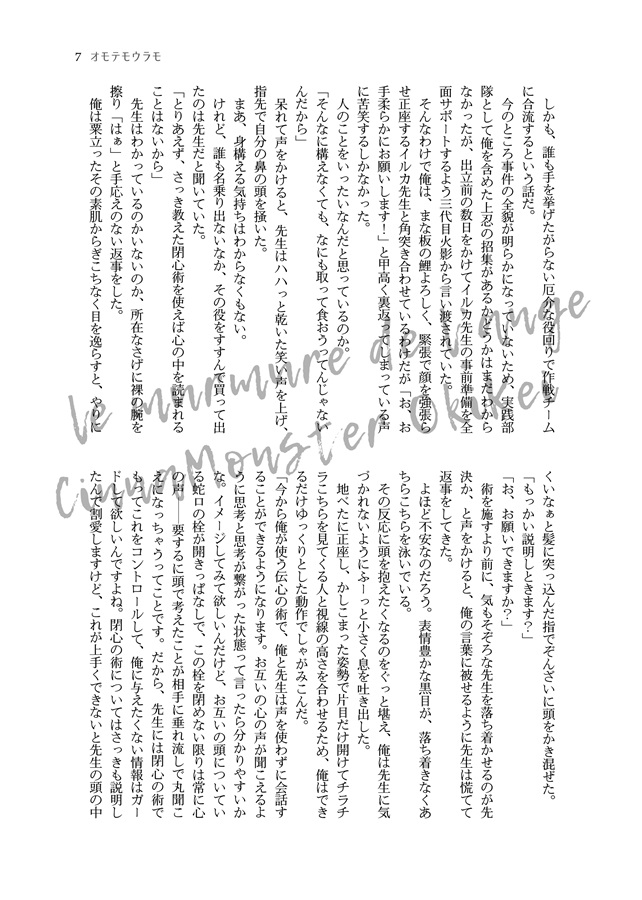 7 オモテモウラモ
しかも、誰も手を挙げたがらない厄介な役回りで作戦チーム
に合流するという話だ。
今のところ事件の全貌が明らかになっていないため、実践部
隊として俺を含めた上忍の招集があるかどうかはまだわから
なかったが、出立前の数日をかけてイルカ先生の事前準備を全
面サポートするよう三代目火影から言い渡されていた。
そんなわけで俺は、まな板の鯉よろしく、緊張で顔を強張ら
せ正座するイルカ先生と角突き合わせているわけだが「お、お
手柔らかにお願いします!」と甲高く裏返ってしまっている声
に苦笑するしかなかった。
人のことをいったいなんだと思っているのか。
「そんなに構えなくても、なにも取って食おうってんじゃない
んだから」
呆れて声をかけると、先生はハハっと乾いた笑い声を上げ、
指先で自分の鼻の頭を掻いた。
まあ、身構える気持ちはわからなくもない。
けれど、誰も名乗り出ないなか、その役をすすんで買って出
たのは先生だと聞いていた。
「とりあえず、さっき教えた閉心術を使えば心の中を読まれる
ことはないから」
先生はわかっているのかいないのか、所在なさげに裸の腕を
擦り「はぁ」と手応えのない返事をした。
俺は粟立ったその素肌からぎこちなく目を逸らすと、やりに
くいなぁと髪に突っ込んだ指でぞんざいに頭をかき混ぜた。
「もっかい説明しときます?」
「お、お願いできますか?」
術を施すより前に、気もそぞろな先生を落ち着かせるのが先
決か、と声をかけると、俺の言葉に被せるように先生は慌てて
返事をしてきた。
よほど不安なのだろう。表情豊かな黒目が、落ち着きなくあ
ちらこちらを泳いでいる。
その反応に頭を抱えたくなるのをぐっと堪え、俺は先生に気
づかれないようにふーっと小さく息を吐き出した。
地べたに正座し、かしこまった姿勢で片目だけ開けてチラチ
ラこちらを見てくる人と視線の高さを合わせるため、俺はでき
るだけゆっくりとした動作でしゃがみこんだ。
「今から俺が使う伝心の術で、俺と先生は声を使わずに会話す
ることができるようになります。お互いの心の声が聞こえるよ
うに思考と思考が繋がった状態って言ったら分かりやすいか
な。イメージしてみて欲しいんだけど、お互いの頭についてい
る蛇口の栓が開きっぱなしで、この栓を閉めない限りは常に心
の声――要するに頭で考えたことが相手に垂れ流しで丸聞こ
えになっちゃうってことです。だから、先生には閉心の術で
もってこれをコントロールして、俺に与えたくない情報はガー
ドして欲しいんですよね。閉心の術についてはさっきも説明し
たんで割愛しますけど、これが上手くできないと先生の頭の中
le murmure de l'ange
CinnaMonster Okike